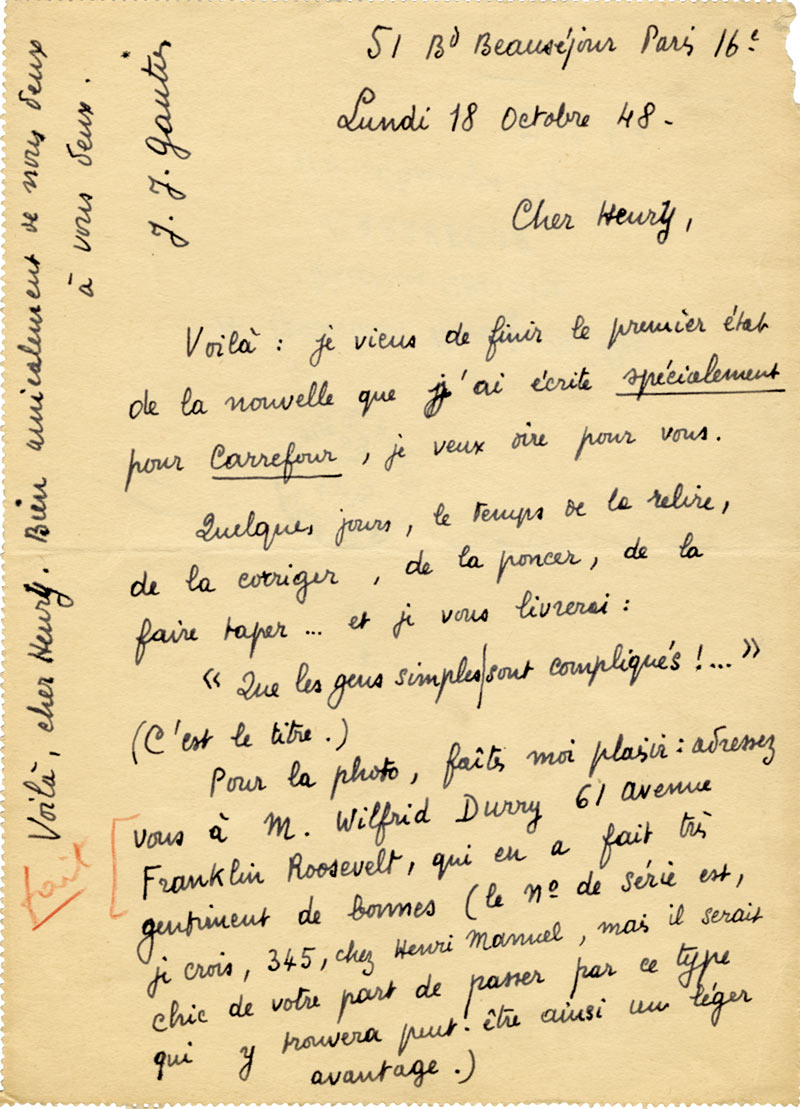 51 Bd Beauséjour Paris 16e
Lundi 18 Octobre 48 -
Cher Henry,
Voilà : je viens de finir le premier état
de la nouvelle que j'ai écrite spécialement
pour Carrefour, je veux dire pour vous.
Quelques jours, le temps de la relire,
de la corriger, de la poncer, de la
faire taper ... et je vous livrerai :
« Que les gens simples sont compliqués !... »
(C'est le titre.)
Pour la photo, faîtes moi plaisir : adressez
vous à M. Wilfrid Durry 61 avenue
Franklin Roosevelt, qui en a fait très
gentiment de bonnes (le No de série est,
je crois, 345, chez Henri Manuel, mais il serait
chic de votre part de passer par ce type
qui y trouvera peut-être ainsi un léger
avantage.)
Voilà, cher Henry. Bien amicalement de nous deux
à vous deux.
J. J. Gautier
fait